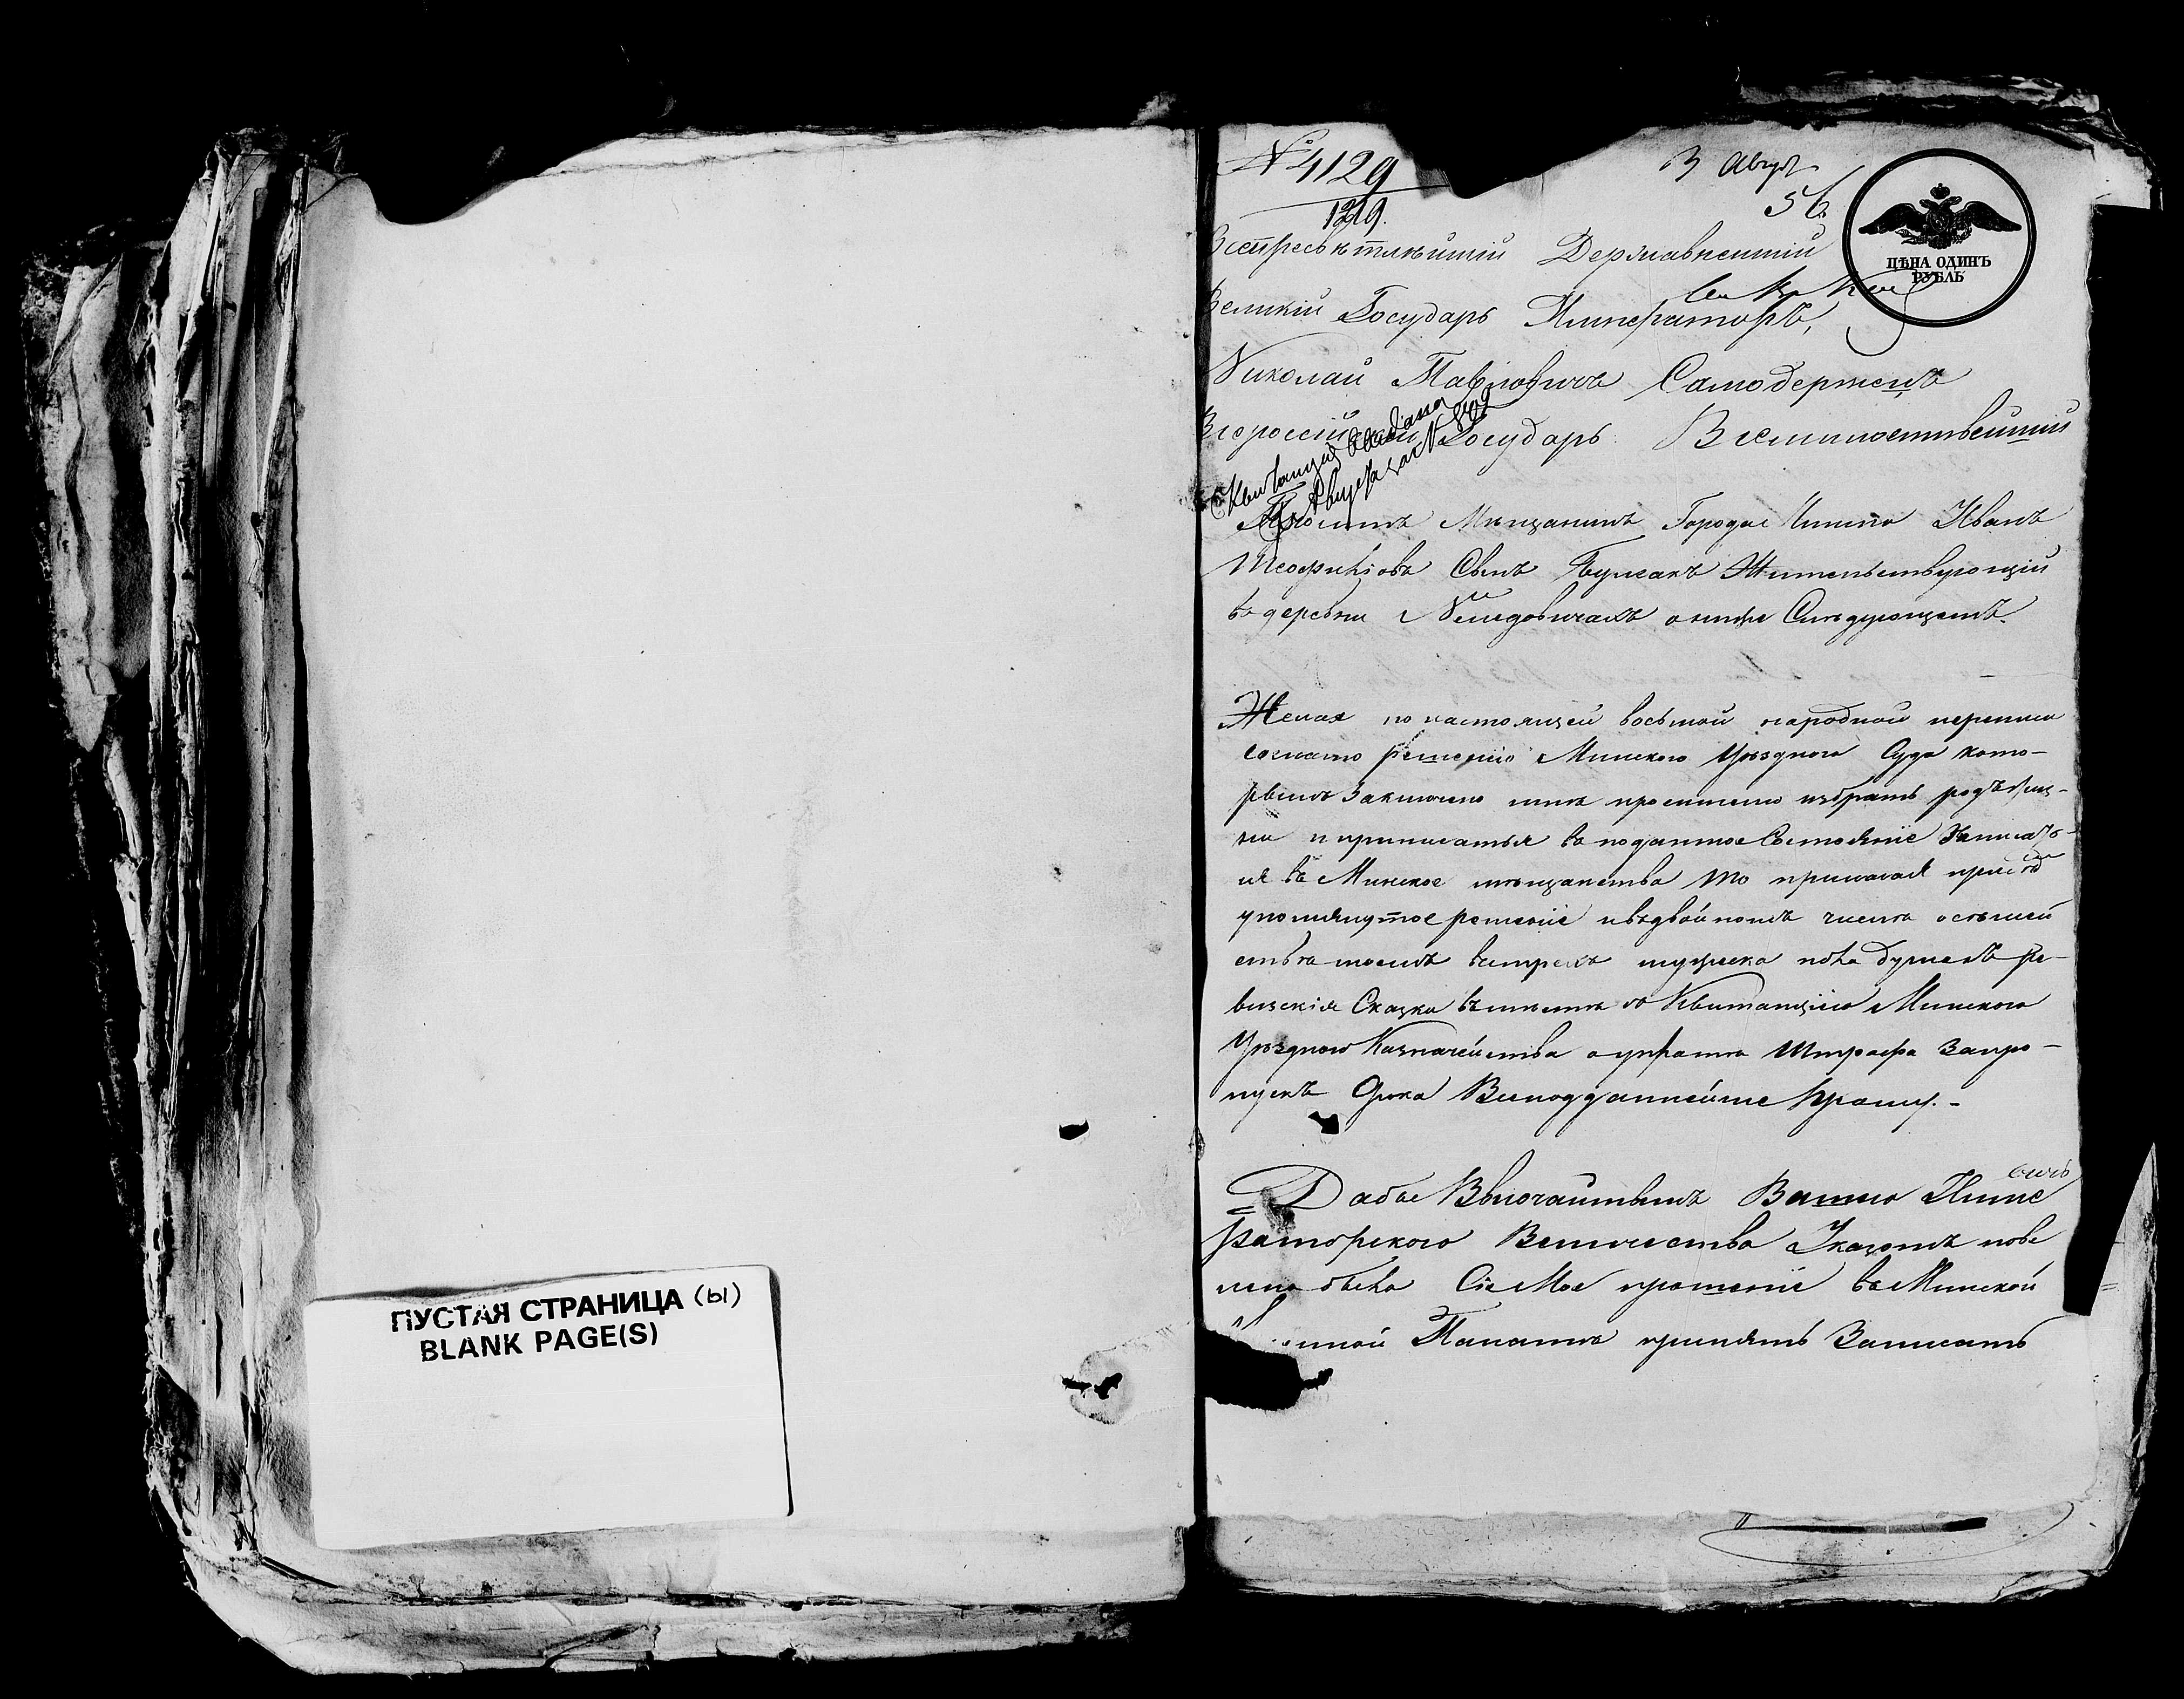 ПУСТАЯ СТРАНИЦА (ы)
BLANK PAGE(S)
№ 4129
1219.
3 Авгус
56
ЦѢНА ОДИНЪ
РУБЛЬ
Всепресвѣтлѣйшій Державнейшій
Великій Государь Императоръ,
Николай Павловичь Самодержецъ
Всероссійскій Государь Всемилостивейшій
Квитанція выдана
Проситъ Мѣщанинъ Города Минска Иванъ
Теофиліовъ Сынъ Булгакъ Жительствующій
въ деревни о нижеслѣдующемъ.
Желая по настоящей восьмой народной переписи
согласно решенію Минского Уѣзднаго Суда кото-
рымъ Заключено мнѣ просителю избрать родъ жиз-
ни и приписаться въ податное Состояніе Записать-
ся въ Минское мѣщанства то прилагая при семъ
упомянутое решеніе и въ двойномъ числѣ о семей
ствѣ моемъ въ трехъ мужеска пола душахъ ре-
визскія Сказки вместѣ съ Квитанціею Минского
Уѣздного Казначейства о уплатѣ Штрафа За про-
пускъ Срока Всеподданнейше Прошу. -
Дабы Высочайшимъ Вашего Импе
раторского Величества Указомъ пове
лено было Сіе Мое прошеніе въ Минской
Палатѣ принять Записать